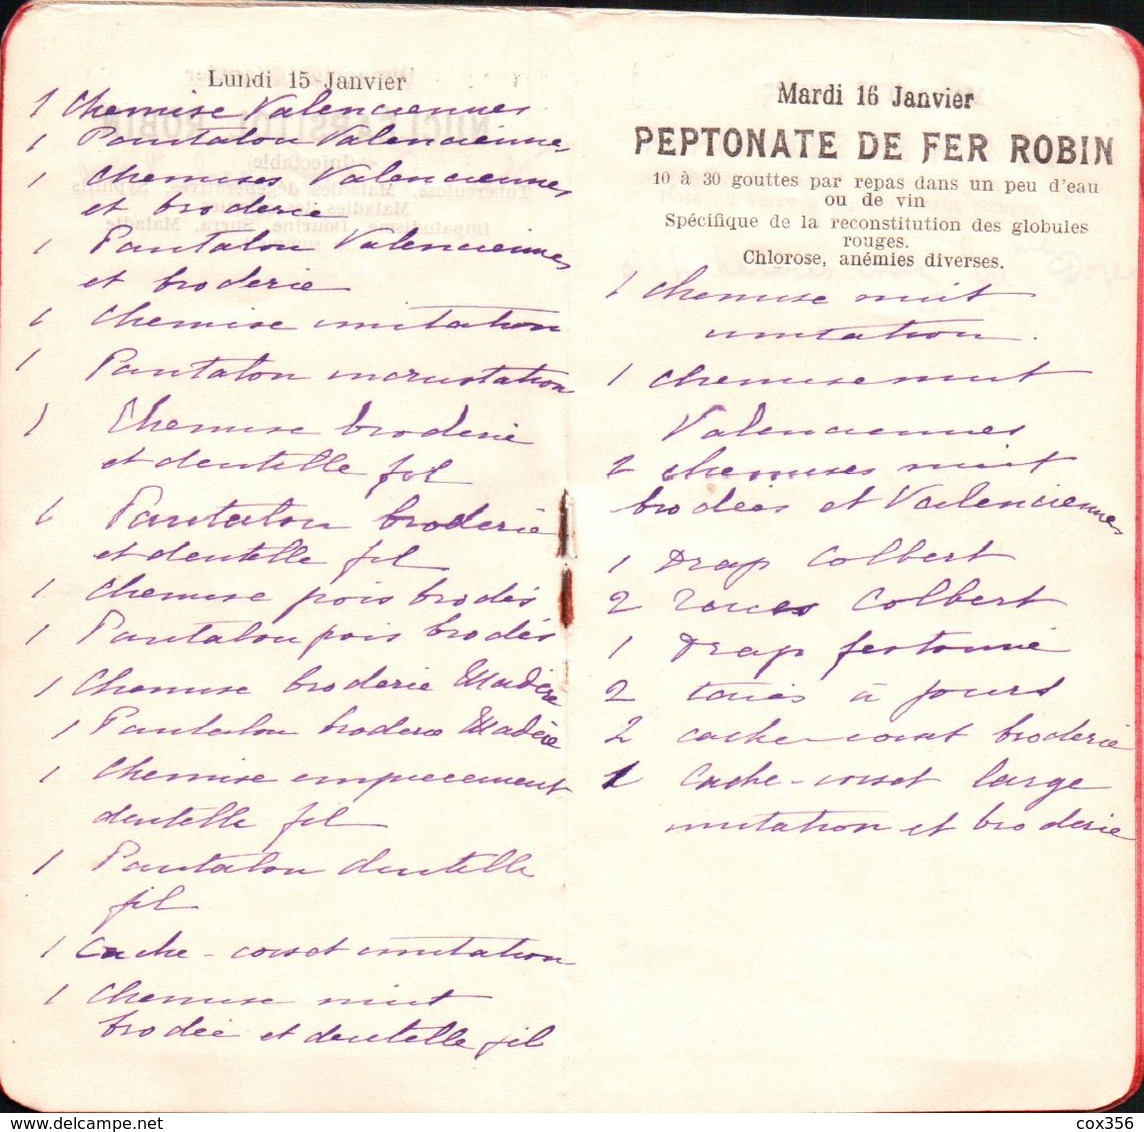 Lundi 15 Janvier
1 Chemise Valenciennes
1 Pantalon Valenciennes
1 Chemises Valenciennes
et broderie
1 Pantalon Valenciennes
et broderie
1 Chemise imitation
1 Pantalon incrustation
1 Chemise broderie
et dentelle fil
1 Pantalon broderie
et dentelle fil
1 Chemise pois brodés
1 Pantalon pois brodés
1 Chemise broderie Madère
1 Pantalon broderie Madère
1 Chemise empiecement
dentelle fil
1 Pantalon dentelle
fil
1 Cache-corset imitation
1 Chemise nuit
brodée et dentelle fil
Mardi 16 Janvier
PEPTONATE DE FER ROBIN
10 à 30 gouttes par repas dans un peu d'eau
ou de vin
Spécifique de la reconstitution des globules
rouges.
Chlorose, anémies diverses.
1 Chemise nuit
imitation.
1 Chemise nuit
Valenciennes
2 chemises nuit
brodées et Valenciennes
1 Drap Colbert
2 Taies Colbert
1 Drap festonné
2 taies à jours
2 cache-corset broderie
1 Cache-corset large
imitation et broderie
cox356